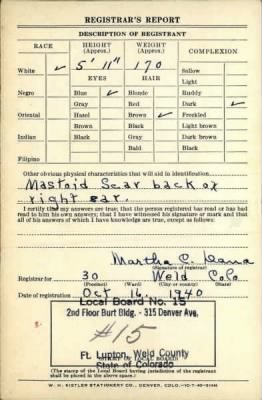 REGISTRAR'S REPORT
DESCRIPTION OF REGISTRANT
RACE HEIGHT (Approx.) WEIGHT (Approx.) COMPLEXION
White ✓ 5' 11" 170 Sallow
EYES HAIR Light
Negro Blue ✓ Blonde Ruddy
Gray Red Dark ✓
Oriental Hazel Brown ✓ Freckled
Brown Black Light brown
Indian Black Gray Dark brown
Bald Black
Filipino
Other obvious physical characteristics that will aid in identification
Mastoid Scar back of
right ear.
I certify that my answers are true; that the person registered has read or has had
read to him his own answers; that I have witnessed his signature or mark and that
all of his answers of which I have knowledge are true, except as follows:
Martha C. Dana
(Signature of registrar)
Registrar for 30 Weld Colo
(Precinct) (Ward) (City or county) (State)
Date of registration Oct 16, 1940
Local Board No. 15
2nd Floor Burt Bldg. - 315 Denver Ave.
#15
Ft. Lupton, Weld County
State of Colorado
(The stamp of the Local Board having jurisdiction of the registrant
shall be placed in the above space.)
W. H. KISTLER STATIONERY CO., DENVER, COLO.